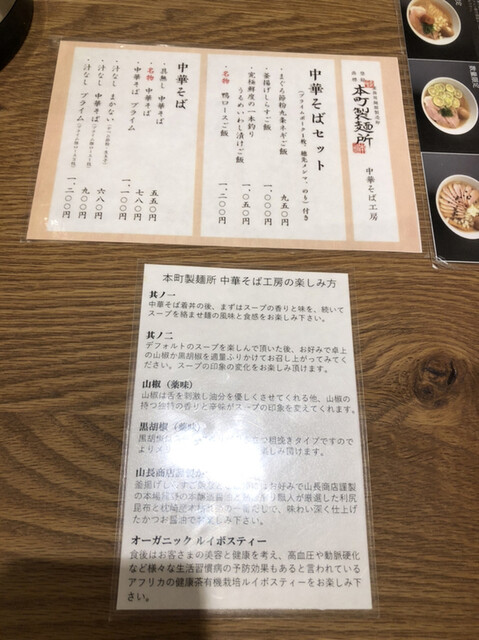 本町製麺所
中華そば工房
中華そばセット
まぐろ節粉九条ネギご飯 九五〇円
釜揚げしらすご飯
究極鮮度の一本釣り
うるめいわし漬けご飯 一、〇五〇円
名物 鴨ロースご飯 一、二〇〇円
中華そば
具無し 中華そば 五五〇円
名物 中華そば 七八〇円
中華そば プライム 一、一〇〇円
汁なし まかない 六八〇円
汁なし 中華そば 九〇〇円
汁なし 中華そば プライム 一、二〇〇円
本町製麺所 中華そば工房の楽しみ方
其ノ一
中華そば着丼の後、まずはスープの香りと味を、続いて
スープを絡ませ麺の風味と食感をお楽しみ下さい。
其ノ二
デフォルトのスープを楽しんで頂いた後、お好みで卓上
の山椒か黒胡椒を適量ふりかけてお召し上がってみてく
ださい。スープの印象の変化をお楽しみ頂けます。
山椒（薬味）
山椒は舌を刺激し油分を優しくさせてくれる他、山椒の
持つ独特の香りと辛味がスープの印象を変えてくれます。
黒胡椒（薬味）
黒胡椒 つ粗挽きタイプですので
より 楽しみ頂けます。
山長商店謹製か
釜揚げしらすご飯 にはお好みで山長商店謹製
の本場 職人が厳選した利尻
昆布と枕崎産 の一番だしで、味わい深く仕上げ
たかつお醤油でお楽しみ下さい。
オーガニック ルイボスティー
食後はお客さまの美容と健康を考え、高血圧や動脈硬化
など様々な生活習慣病の予防効果もあると言われている
アフリカの健康茶有機栽培ルイボスティーをお楽しみ下
さい。